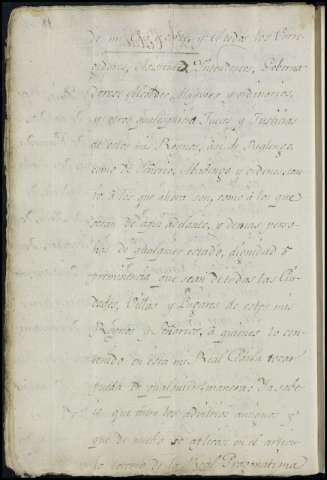 de mi Casa y Corte, y á todos los Corre-
gidores, Asistente, Intendentes, Goberna-
dores, Alcaldes Mayores y ordinarios,
y otros qualesquiera Jueces y Justicias
de estos mis Reynos, asi de Realengo,
como de Señorío, Abadengo y ordenes, tan-
to á los que ahora son, como á los que
serán de aqui adelante, y demas perso-
nas de qualquier estado, dignidad ó
preeminencia que sean de todas las Ciu-
dades, Villas y Lugares de estos mis
Reynos y Señorios, á quienes lo con-
tenido en esta mi Real Cédula tocar
pueda de qualquier manera: Ya sabe-
is que entre los arbitrios antiguos y
que de nuevo se aplican en el articu-
lo tercero de la Real Pragmatica